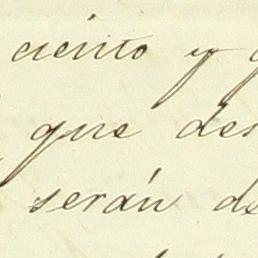 ciento y
que des
serán de